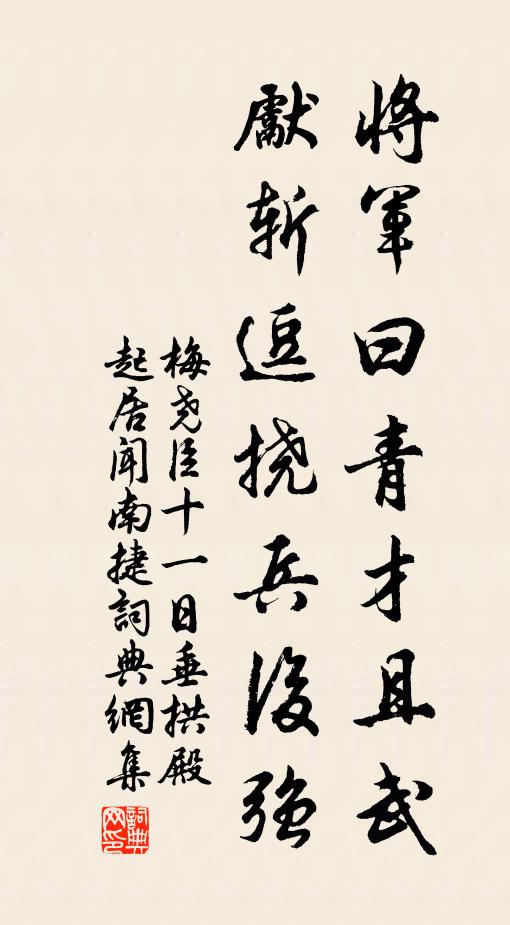 將軍曰青才且武
獻斬逗撓兵復強
梅堯臣十一日垂拱殿
起居聞南捷詞典網集
詞典
网印